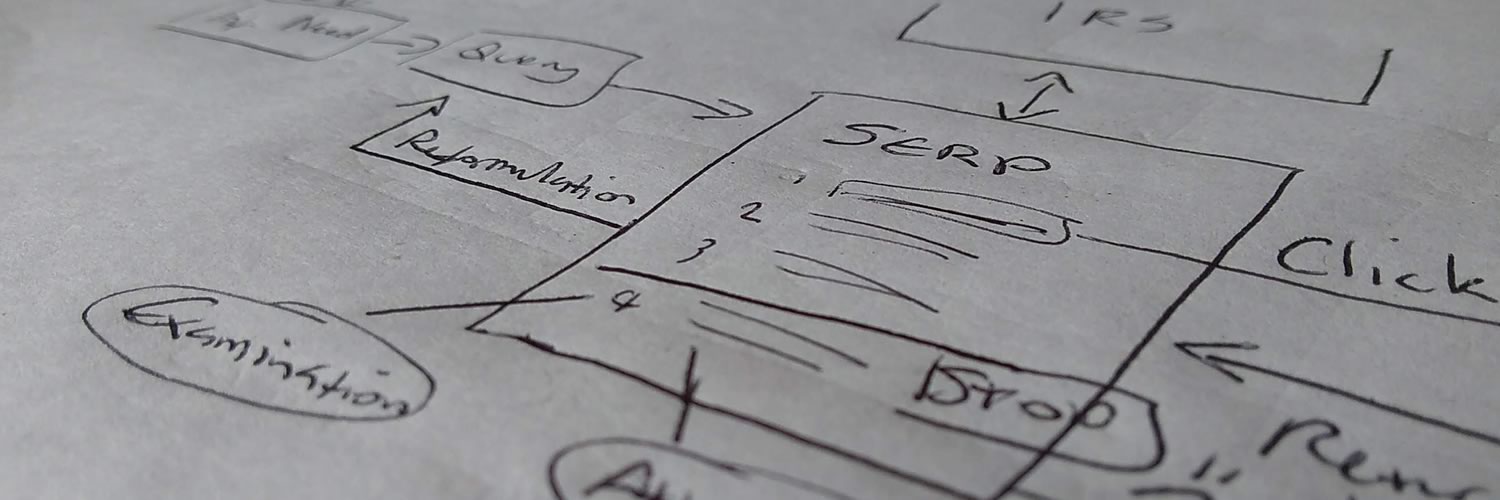 Query
IRS
Reformulation
SERP
1
2
3
4
Click
Examination
Stop